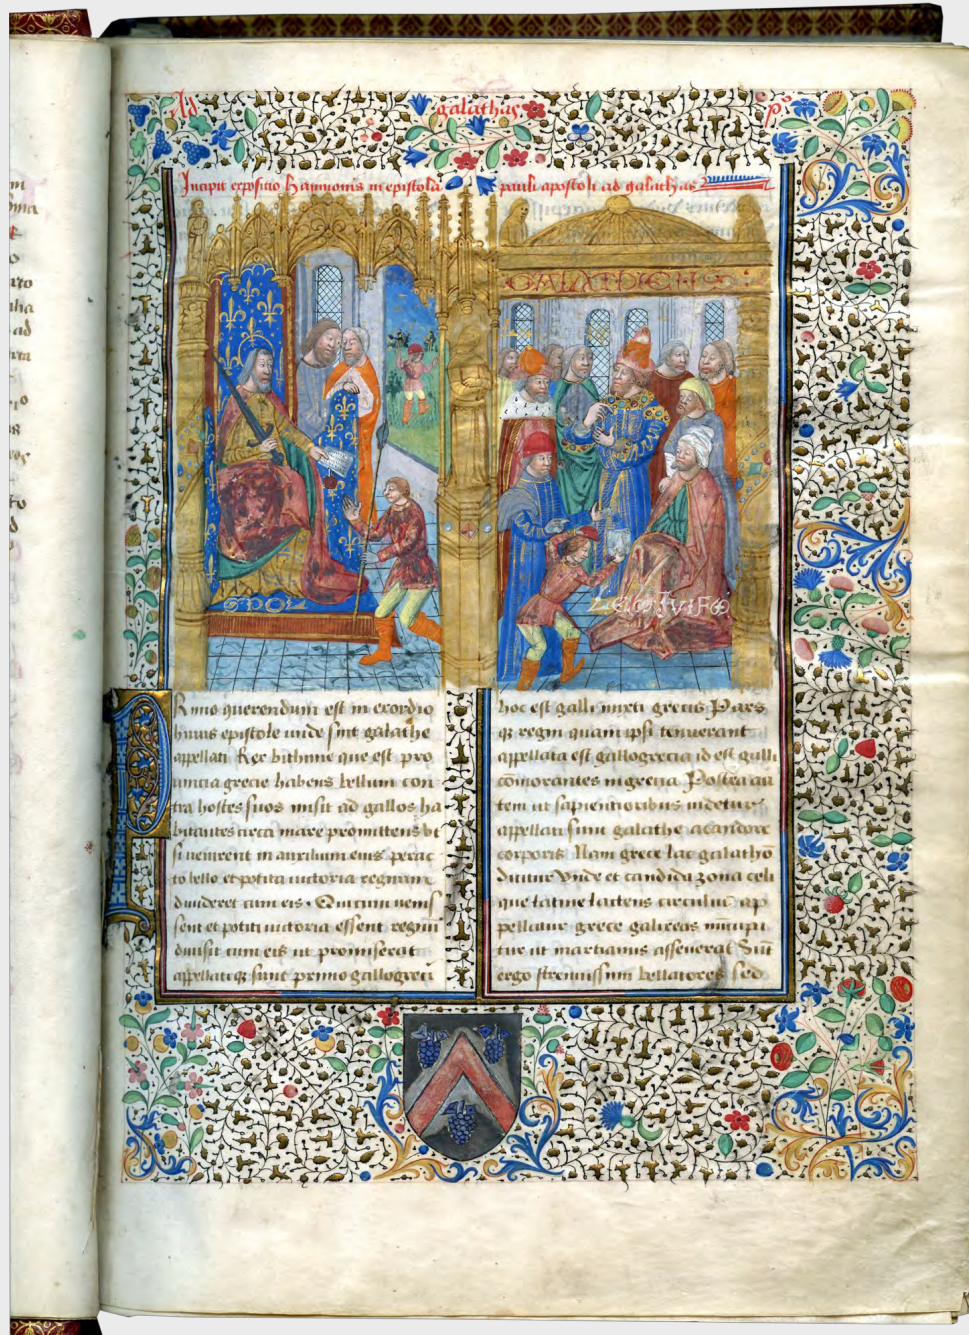 Ad galathas pͥ
Incipit expositio haimonis in epistola pauli apostoli ad galathas
Rimo querendum est in exordio
huius epistole unde sint galathe
appellati Rex bithinie que est pro
uincia grecie habens bellum con
tra hostes suos misit ad gallos ha
bitantes circa mare promittens ut
si uenirent in auxilium eius perac
to bello et potita uictoria regnum
diuideret cum eis. Qui cum uenis
sent et potiti uictoria essent regnum
diuisit cum eis ut promiserat
appellatiq sunt primo gallogreci
hoc est galli mixti grecis Pars
q regni quam ipsi tenuerant
appellata est gallogrecia id est galli
cōmorantes in grecia Postea au
tem ut sapientioribus uidetur
appellati sunt galathe a candore
corporis Nam grece lac galathō
dicitur Vnde et candida zona celi
que latine lacteus circulus ap
pellatur grece galixias nūcupa
tur ut martianus asseuerat Sūt
ergo strenuissimi bellatores sed